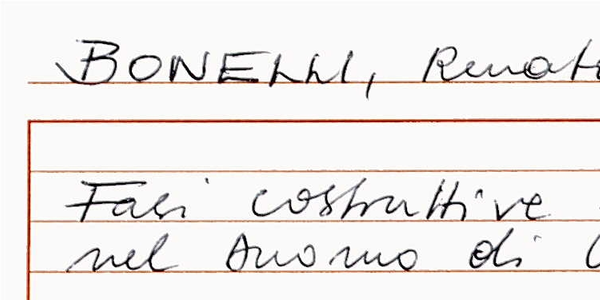 BONELLI, Renato
Fasi costruttive
nel Duomo di